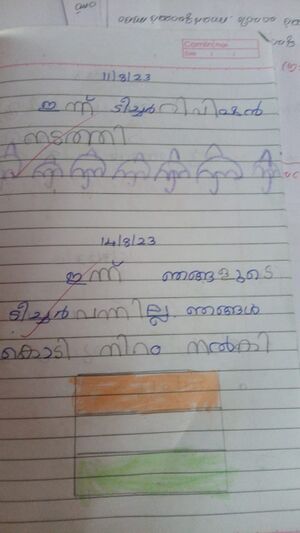 Camlin
Date / /
11/8/23
ഇന്ന് ടീച്ചർ
നടത്തി
14/8/23
ഇന്ന് ഞങ്ങളുടെ
ടീച്ചർ വന്നില്ല. ഞങ്ങൾ
കൊടി നിറം നൽകി